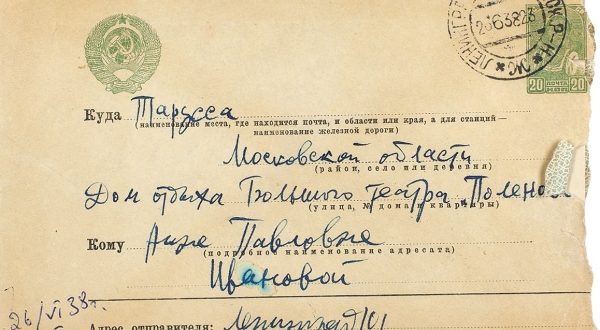 ЛЕНИНГР
2363823
20 ПОЧТА 20
КОП
Куда Тарусса
(наименование места, где находится почта, и области или края, а для станций—
наименование железной дороги)
Московской области
(район, село или деревня)
Дом отдыха Большого театра „Поленов
(улица, № дома и квартиры)
Кому Анне Павловне
(подробное наименование адресата)
Ивановой
26/VI 38г.
Адрес отправителя: Ленинград 101